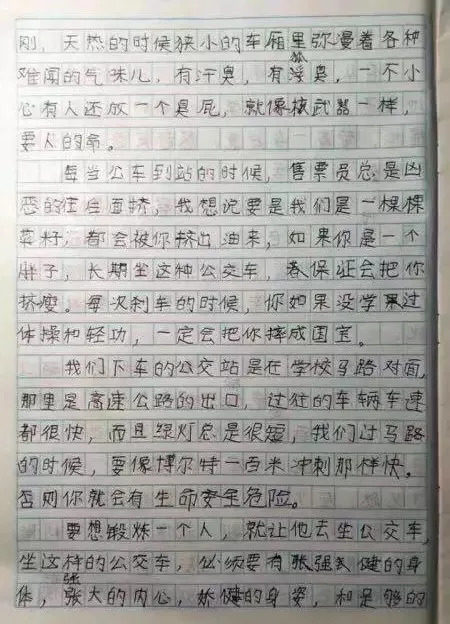 刚，天热的时候狭小的车厢里弥漫着各种
难闻的气味儿，有汗臭，有狐臭，一不小
心有人还放一个臭屁，就像核武器一样，
要人的命。
每当公车到站的时候，售票员总是凶
恶的往后面挤，我想说要是我们是一棵棵
菜籽，都会被你挤出油来，如果你是一个
胖子，长期坐这种公交车，我保证会把你
挤瘦。每次刹车的时候，你如果没学过
体操和轻功，一定会把你摔成国宝。
我们下车的公交站是在学校马路对面，
那里是高速公路的出口，过往的车辆车速
都很快，而且绿灯总是很短，我们过马路
的时候，要像博尔特一百米冲刺那样快。
否则你就会有生命安全危险。
要想锻炼一个人，就让他去坐公交车，
坐这样的公交车，必须要有强健的身
体，强大的内心，矫健的身姿，和足够的